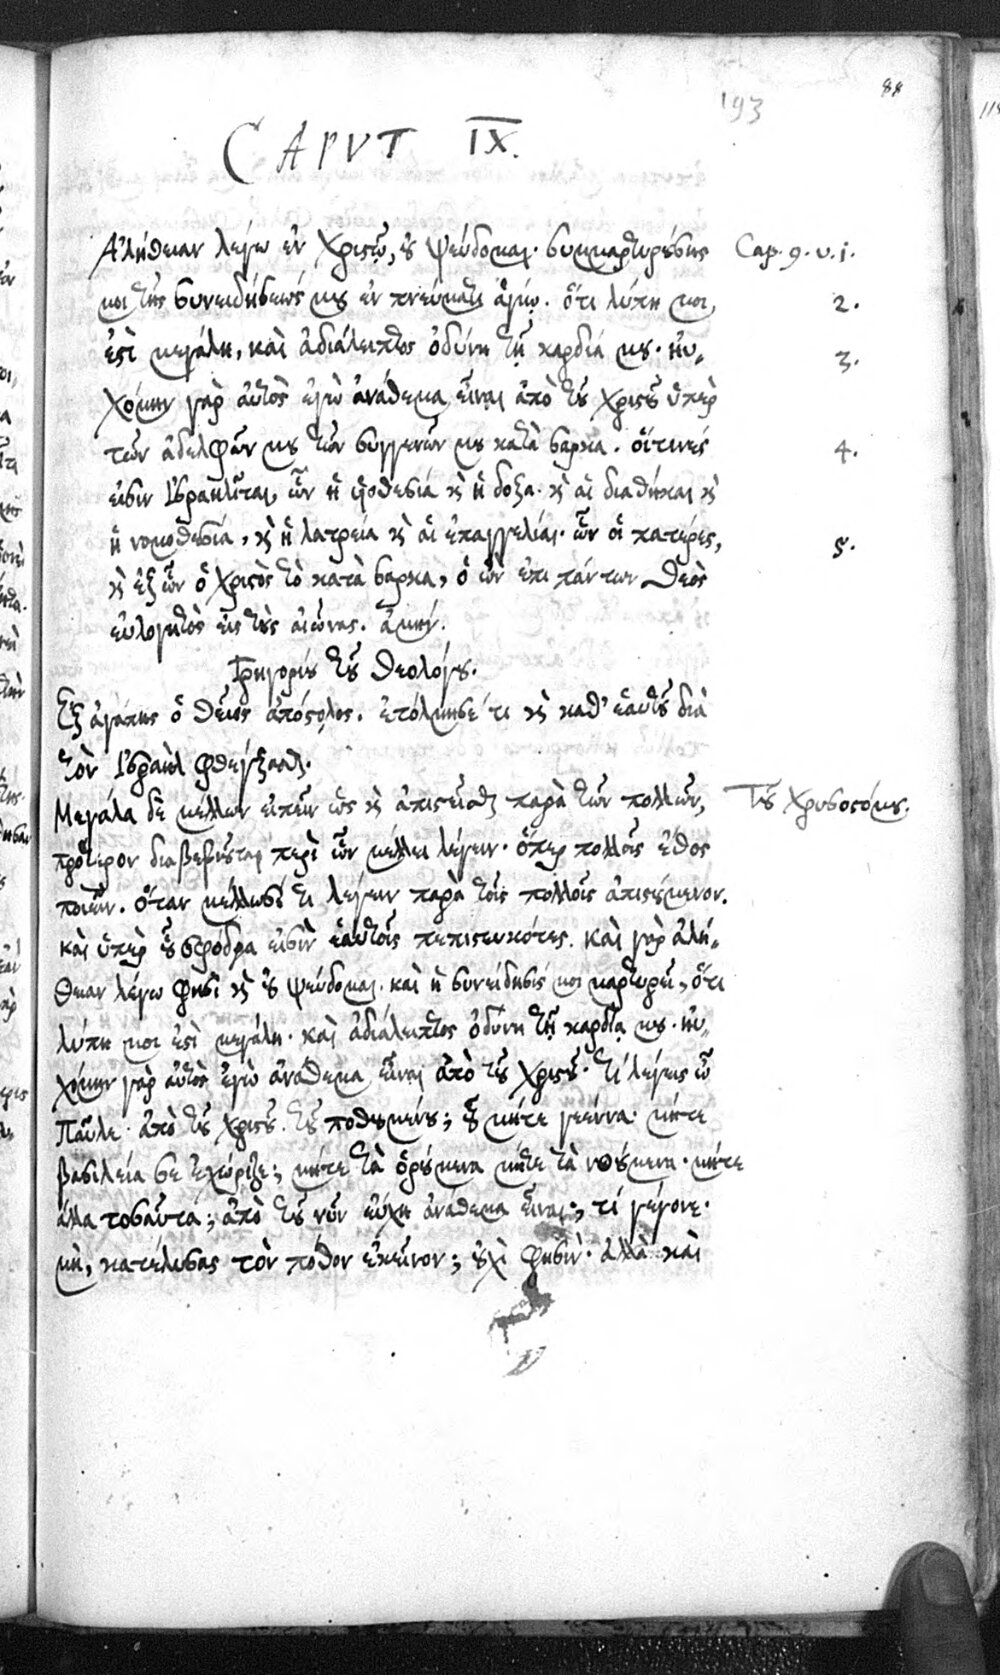 88
193
CAPVT IX.
Ἀλήθειαν λέγω ἐν Χριστῷ, οὐ ψεύδομαι· συμμαρτυρούσης Cap. 9. v. 1.
μοι τῆς συνειδήσεώς μου ἐν πνεύματι ἁγίῳ. ὅτι λύπη μοι 2.
ἐστὶ μεγάλη, καὶ ἀδιάλειπτος ὀδύνη τῇ καρδίᾳ μου. ηὐ- 3.
χόμην γὰρ αὐτὸς ἐγὼ ἀνάθεμα εἶναι ἀπὸ τοῦ χριστοῦ ὑπὲρ
τῶν ἀδελφῶν μου τῶν συγγενῶν μου κατὰ σάρκα. οἵτινές 4.
εἰσιν Ἰσραηλῖται, ὧν ἡ υἱοθεσία καὶ ἡ δόξα. καὶ αἱ διαθῆκαι καὶ
ἡ νομοθεσία, καὶ ἡ λατρεία καὶ αἱ ἐπαγγελίαι. ὧν οἱ πατέρες, 5.
καὶ ἐξ ὧν ὁ χριστὸς τὸ κατὰ σάρκα, ὁ ὢν ἐπι πάντων θεὸς
εὐλογητὸς εἰς τοὺς αἰῶνας. ἀμήν.
Γρηγορίου τοῦ θεολόγου.
Ἐξ ἀγάπης ὁ θεῖος ἀπόστολος. ἐτόλμησέ τι καὶ καθ' ἑαυτοῦ διὰ
τὸν Ἰσραὴλ φθέγξασθαι.
Μεγάλα δὲ μέλλων εἰπεῖν ὡς καὶ ἀπιστεῖσθαι παρὰ τῶν πολλῶν, Τοῦ Χρυσοστόμου.
πρότερον διαβεβιοῦται περὶ ὧν μέλλει λέγειν. ὅπερ πολλοῖς ἔθος
ποιεῖν. ὅταν μέλλωσί τι λέγειν παρὰ τοῖς πολλοῖς ἀπιστούμενον.
καὶ ὑπὲρ οὗ σφόδρα εἰσὶν ἑαυτοῖς πεπιστευκότες. καὶ γὰρ ἀλή-
θειαν λέγω φησὶ καὶ οὐ ψεύδομαι. καὶ ἡ συνείδησίς μοι μαρτυρεῖ, ὅτι
λύπη μοι ἐστὶ μεγάλη. καὶ ἀδιάλειπτος ὀδύνη τῇ καρδίᾳ μου. ηὐ-
χόμην γὰρ αὐτὸς ἐγὼ ἀνάθεμα εἶναι ἀπὸ τοῦ χριστοῦ. τί λέγεις ὦ
Παῦλε. ἀπὸ τοῦ χριστοῦ. τοῦ ποθουμένου; οὗ μήτε γεέννα. μήτε
βασιλεία σε ἐχώριζε; μήτε τὰ ὁρώμενα μήτε τὰ νοούμενα. μήτε
ἄλλα τοσαῦτα; ἀπὸ τοῦ νῦν εὔχη ἀνάθεμα εἶναι; τί γέγονε.
μὴ, κατέλυσας τὸν πόθον ἐκεῖνον; οὐχὶ φησὶν. ἀλλὰ καὶ